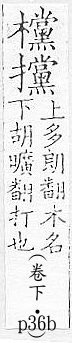 欓攩
上多朗翻木名
下胡曠翻打也
(卷下)
p36b